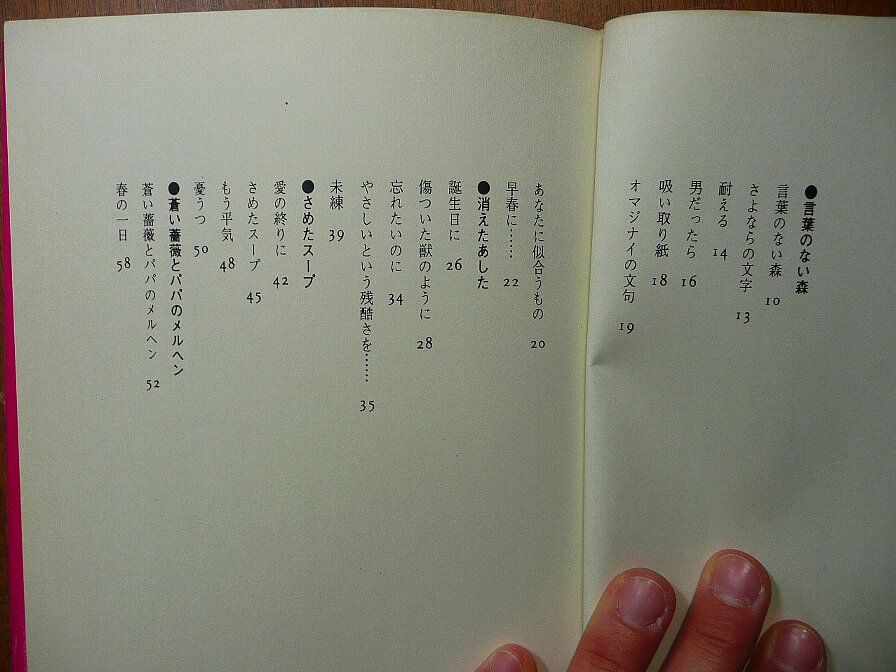 ●言葉のない森
言葉のない森 10
さよならの文字 13
耐える 14
男だったら 16
吸い取り紙 18
オマジナイの文句 19
あなたに似合うもの 20
早春に…… 22
●消えたあした
誕生日に 26
傷ついた獣のように 28
忘れたいのに 34
やさしいという残酷さを…… 35
未練 39
●さめたスープ
愛の終りに 42
さめたスープ 45
もう平気 48
憂うつ 50
●蒼い薔薇とパパのメルヘン
蒼い薔薇とパパのメルヘン 52
春の一日 58